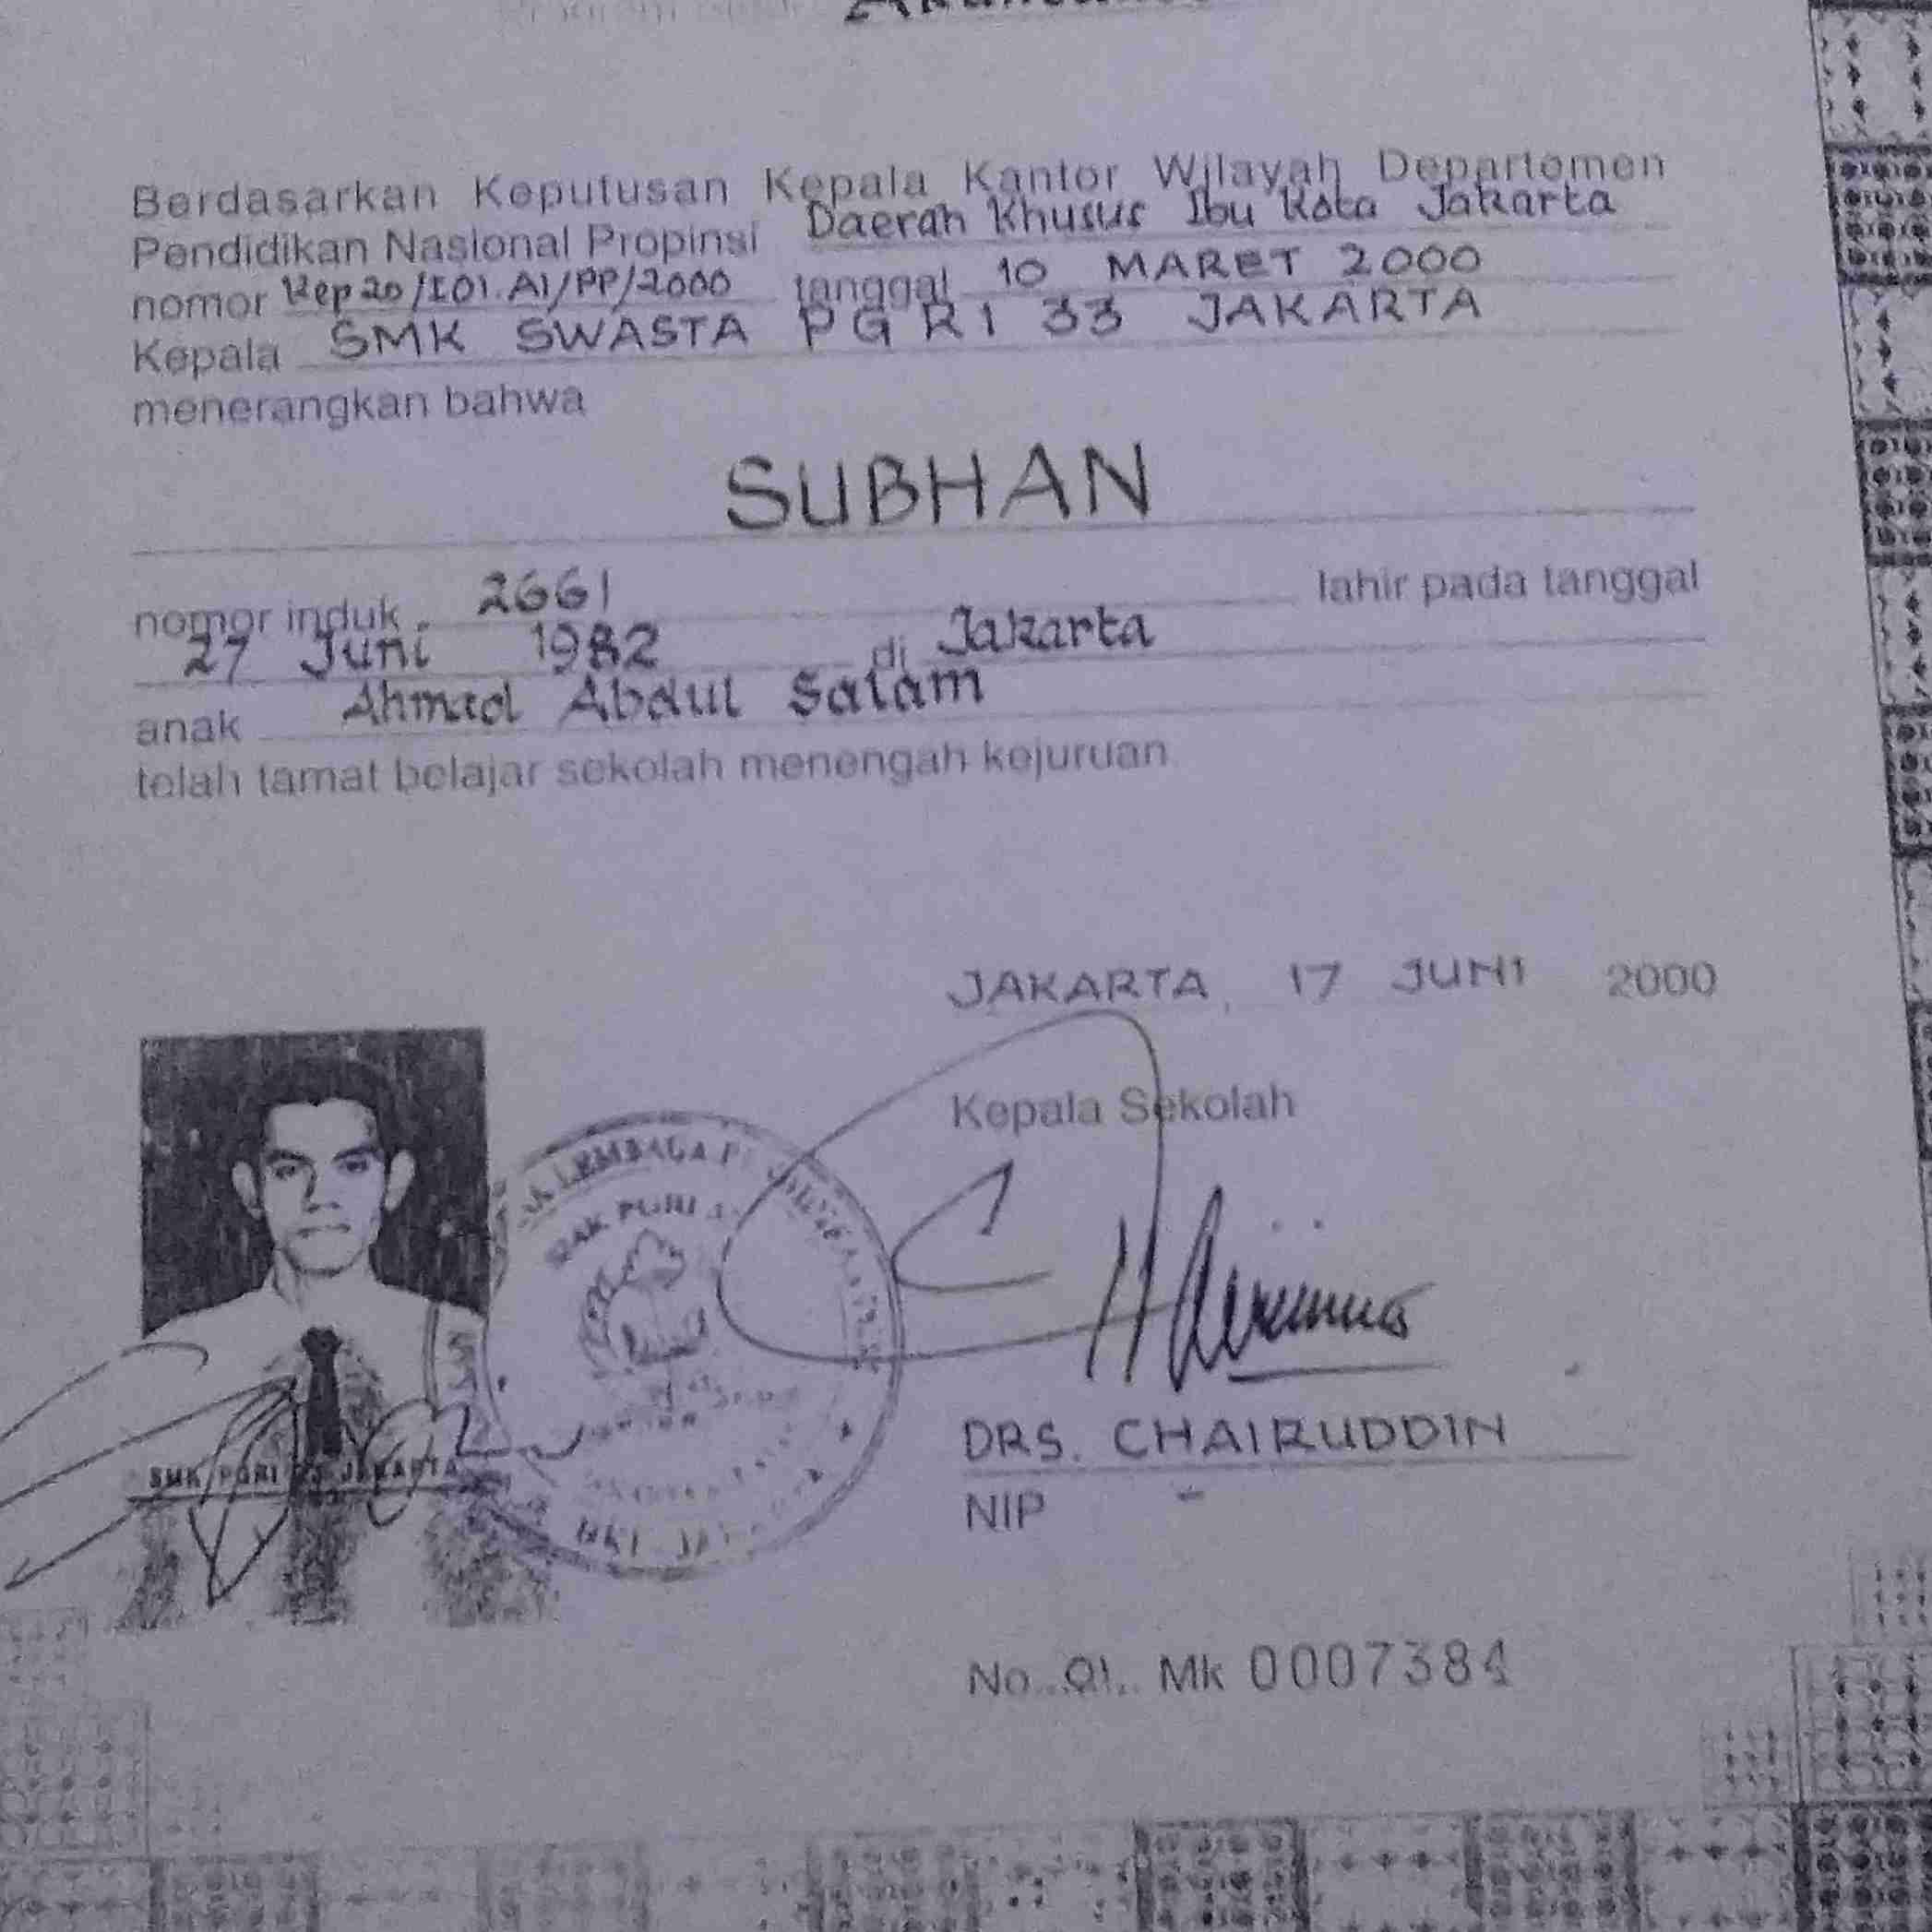 Berdasarkan Keputusan Kepala Kantor Wilayah Departemen
Pendidikan Nasional Propinsi Daerah Khusus Ibu Kota Jakarta
nomor Kep 20/I01.A1/PP/2000 tanggal 10 MARET 2000
Kepala SMK SWASTA PGRI 33 JAKARTA
menerangkan bahwa
SUBHAN
nomor induk 2661 lahir pada tanggal
27 Juni 1982 di Jakarta
anak Ahmad Abdul Salam
telah tamat belajar sekolah menengah kejuruan
JAKARTA, 17 JUNI 2000
Kepala Sekolah
LEMBAGA
PGRI
DRS. CHAIRUDDIN
SMK PGRI JAKARTA
NIP -
DKI
No. 01. Mk 0007384